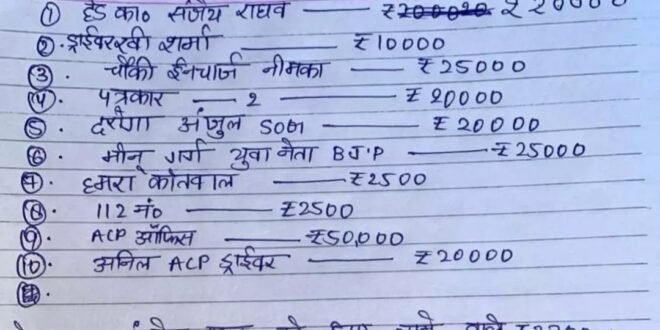 ① हैड का० संजय राघव — ₹200020 ₹20000
②. ड्राईवर रवी शर्मा — ₹10000
③. चौकी ईनचार्ज नीमका — ₹25000
④. पत्रकार — 2 — ₹20000
⑤. दरोगा अंजुल SOG — ₹20000
⑥. मीनू गर्ग युवा नेता BJP — ₹25000
⑦. हमरा कोतवाल — ₹2500
⑧. 112 नं० — ₹2500
⑨. ACP ऑफिस — ₹50,000
⑩. अनिल ACP ड्राईवर — ₹20000
⑪.